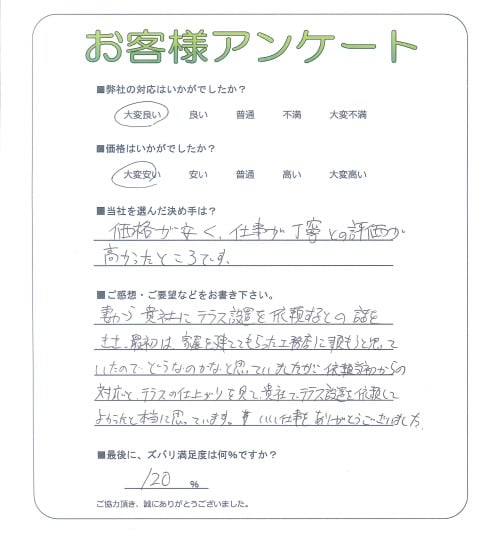 お客様アンケート
■弊社の対応はいかがでしたか？
大変良い 良い 普通 不満 大変不満
■価格はいかがでしたか？
大変安い 安い 普通 高い 大変高い
■当社を選んだ決め手は？
価格が安く、仕事が丁寧との評価が
高かったところです。
■ご感想・ご要望などをお書き下さい。
妻から貴社にテラス設置を依頼するとの話を
きき、最初は、家屋を建ててもらった工務店に頼もうと思って
いたので、どうなのかなと思っていましたが、依頼当初からの
対応と、テラスの仕上がりを見て、貴社でテラス設置を依頼して
よかったと本当に思っています。いい仕事をありがとうございました。
■最後に、ズバリ満足度は何％ですか？
120 ％
ご協力頂き、誠にありがとうございました。